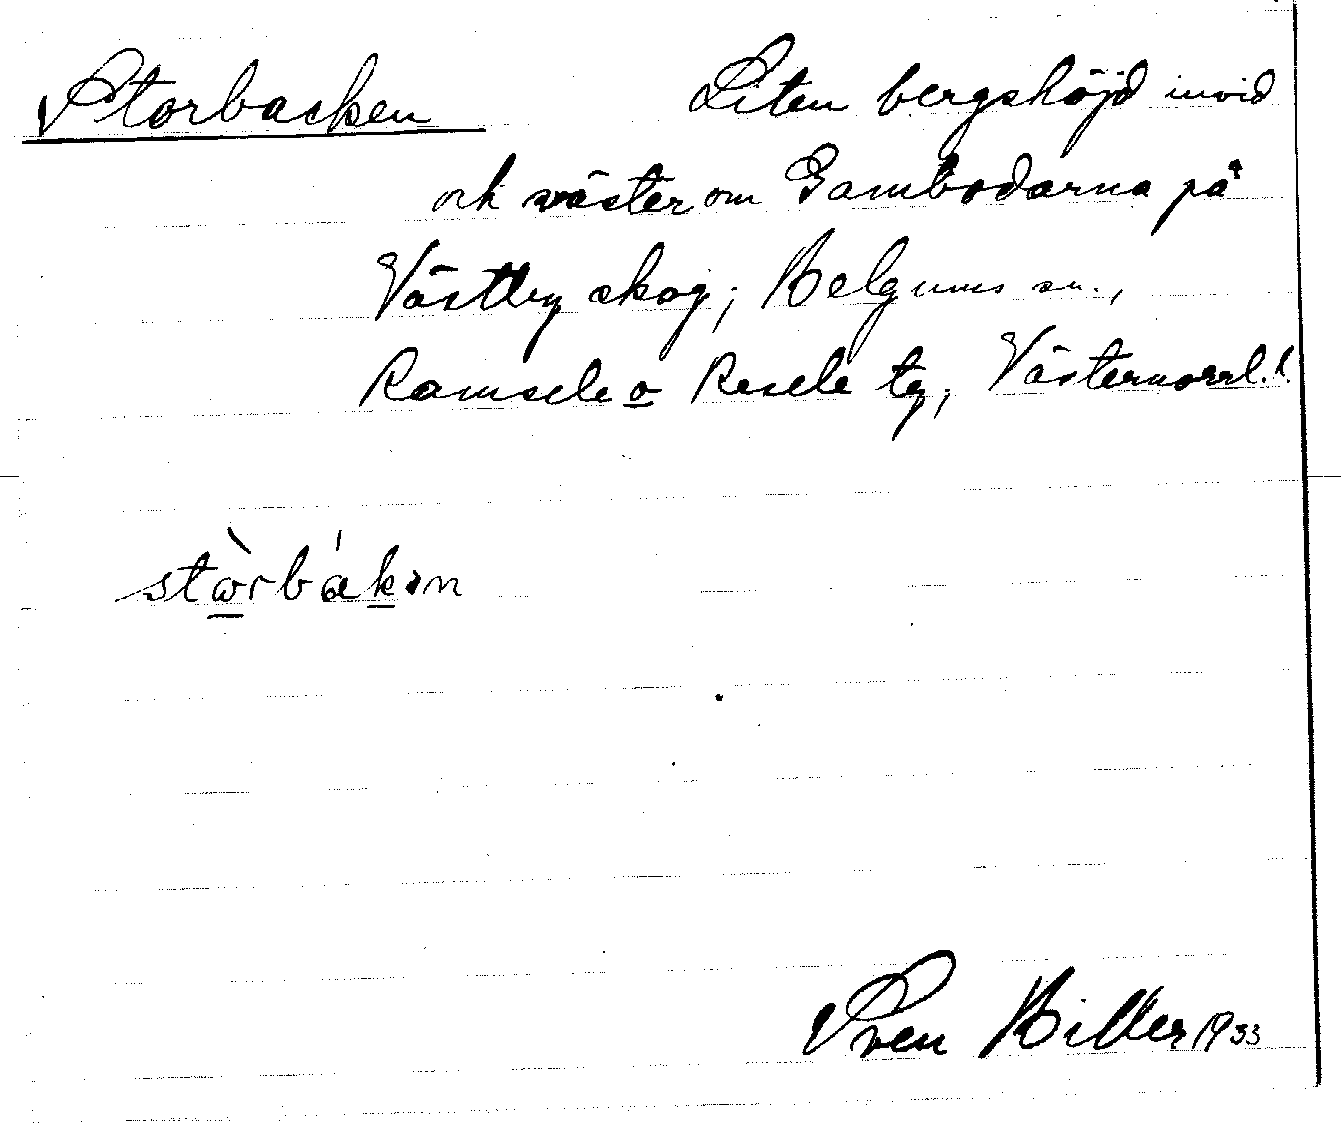 Storbacken Liten bergshöjd invid
och väster om Gambodarna på
Västby skog; Helgums sn.,
Ramsele o Resele tg, Västernorrl. l.
stòrbákən
Sven Hiller 1933